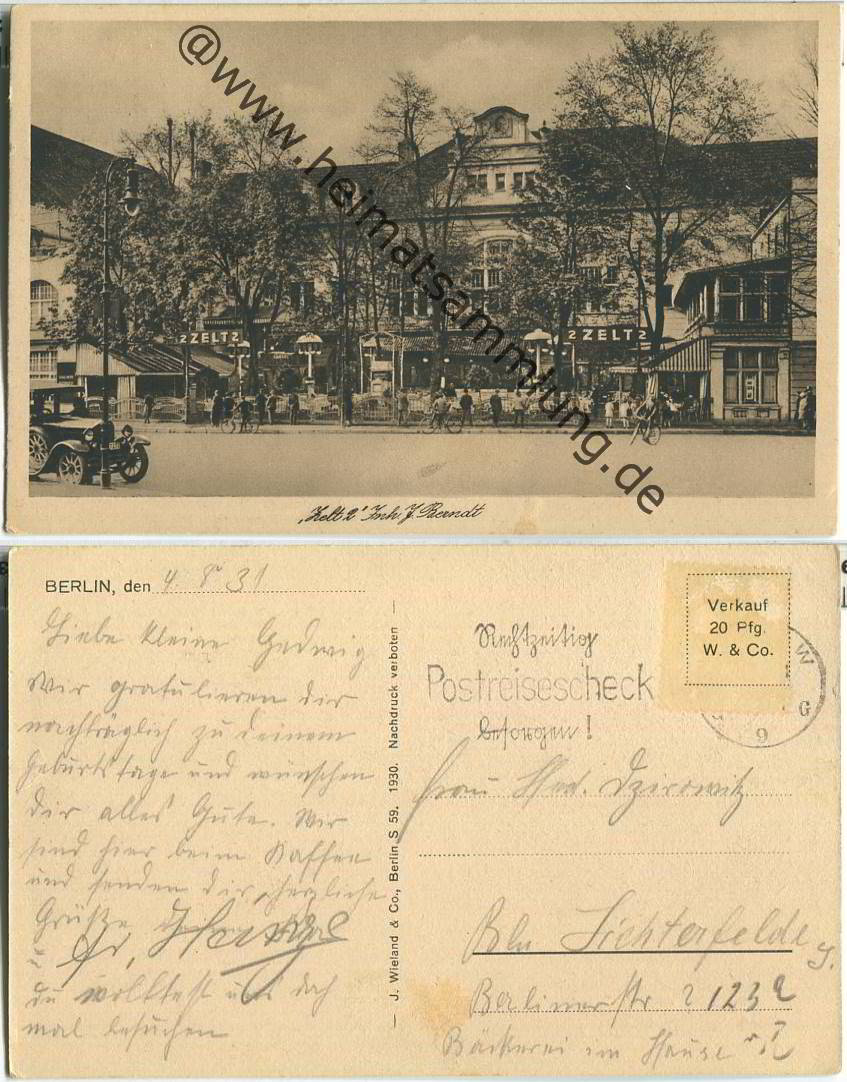 @www.heimatsammlung.de
2 ZELT 2
2 ZELT 2
„Zelt 2" Inh. J. Berndt
BERLIN, den 4. 8 31
Liebe kleine Hedwig
Wir gratulieren dir
nachträglich zu deinem
Geburtstage und wünschen
dir alles Gute. Wir
sind hier beim Kaffee
und senden dir herzliche
Grüße
du wolltest uns doch
mal besuchen.
— J. Wieland & Co., Berlin S 59. 1930. Nachdruck verboten —
Rechtzeitig
Postreisescheck
besorgen!
Verkauf
20 Pfg.
W. & Co.
W
G
9
Frau Hed.
Bln Lichterfelde
Berlinerstr 123a
Bäckerei im Hause